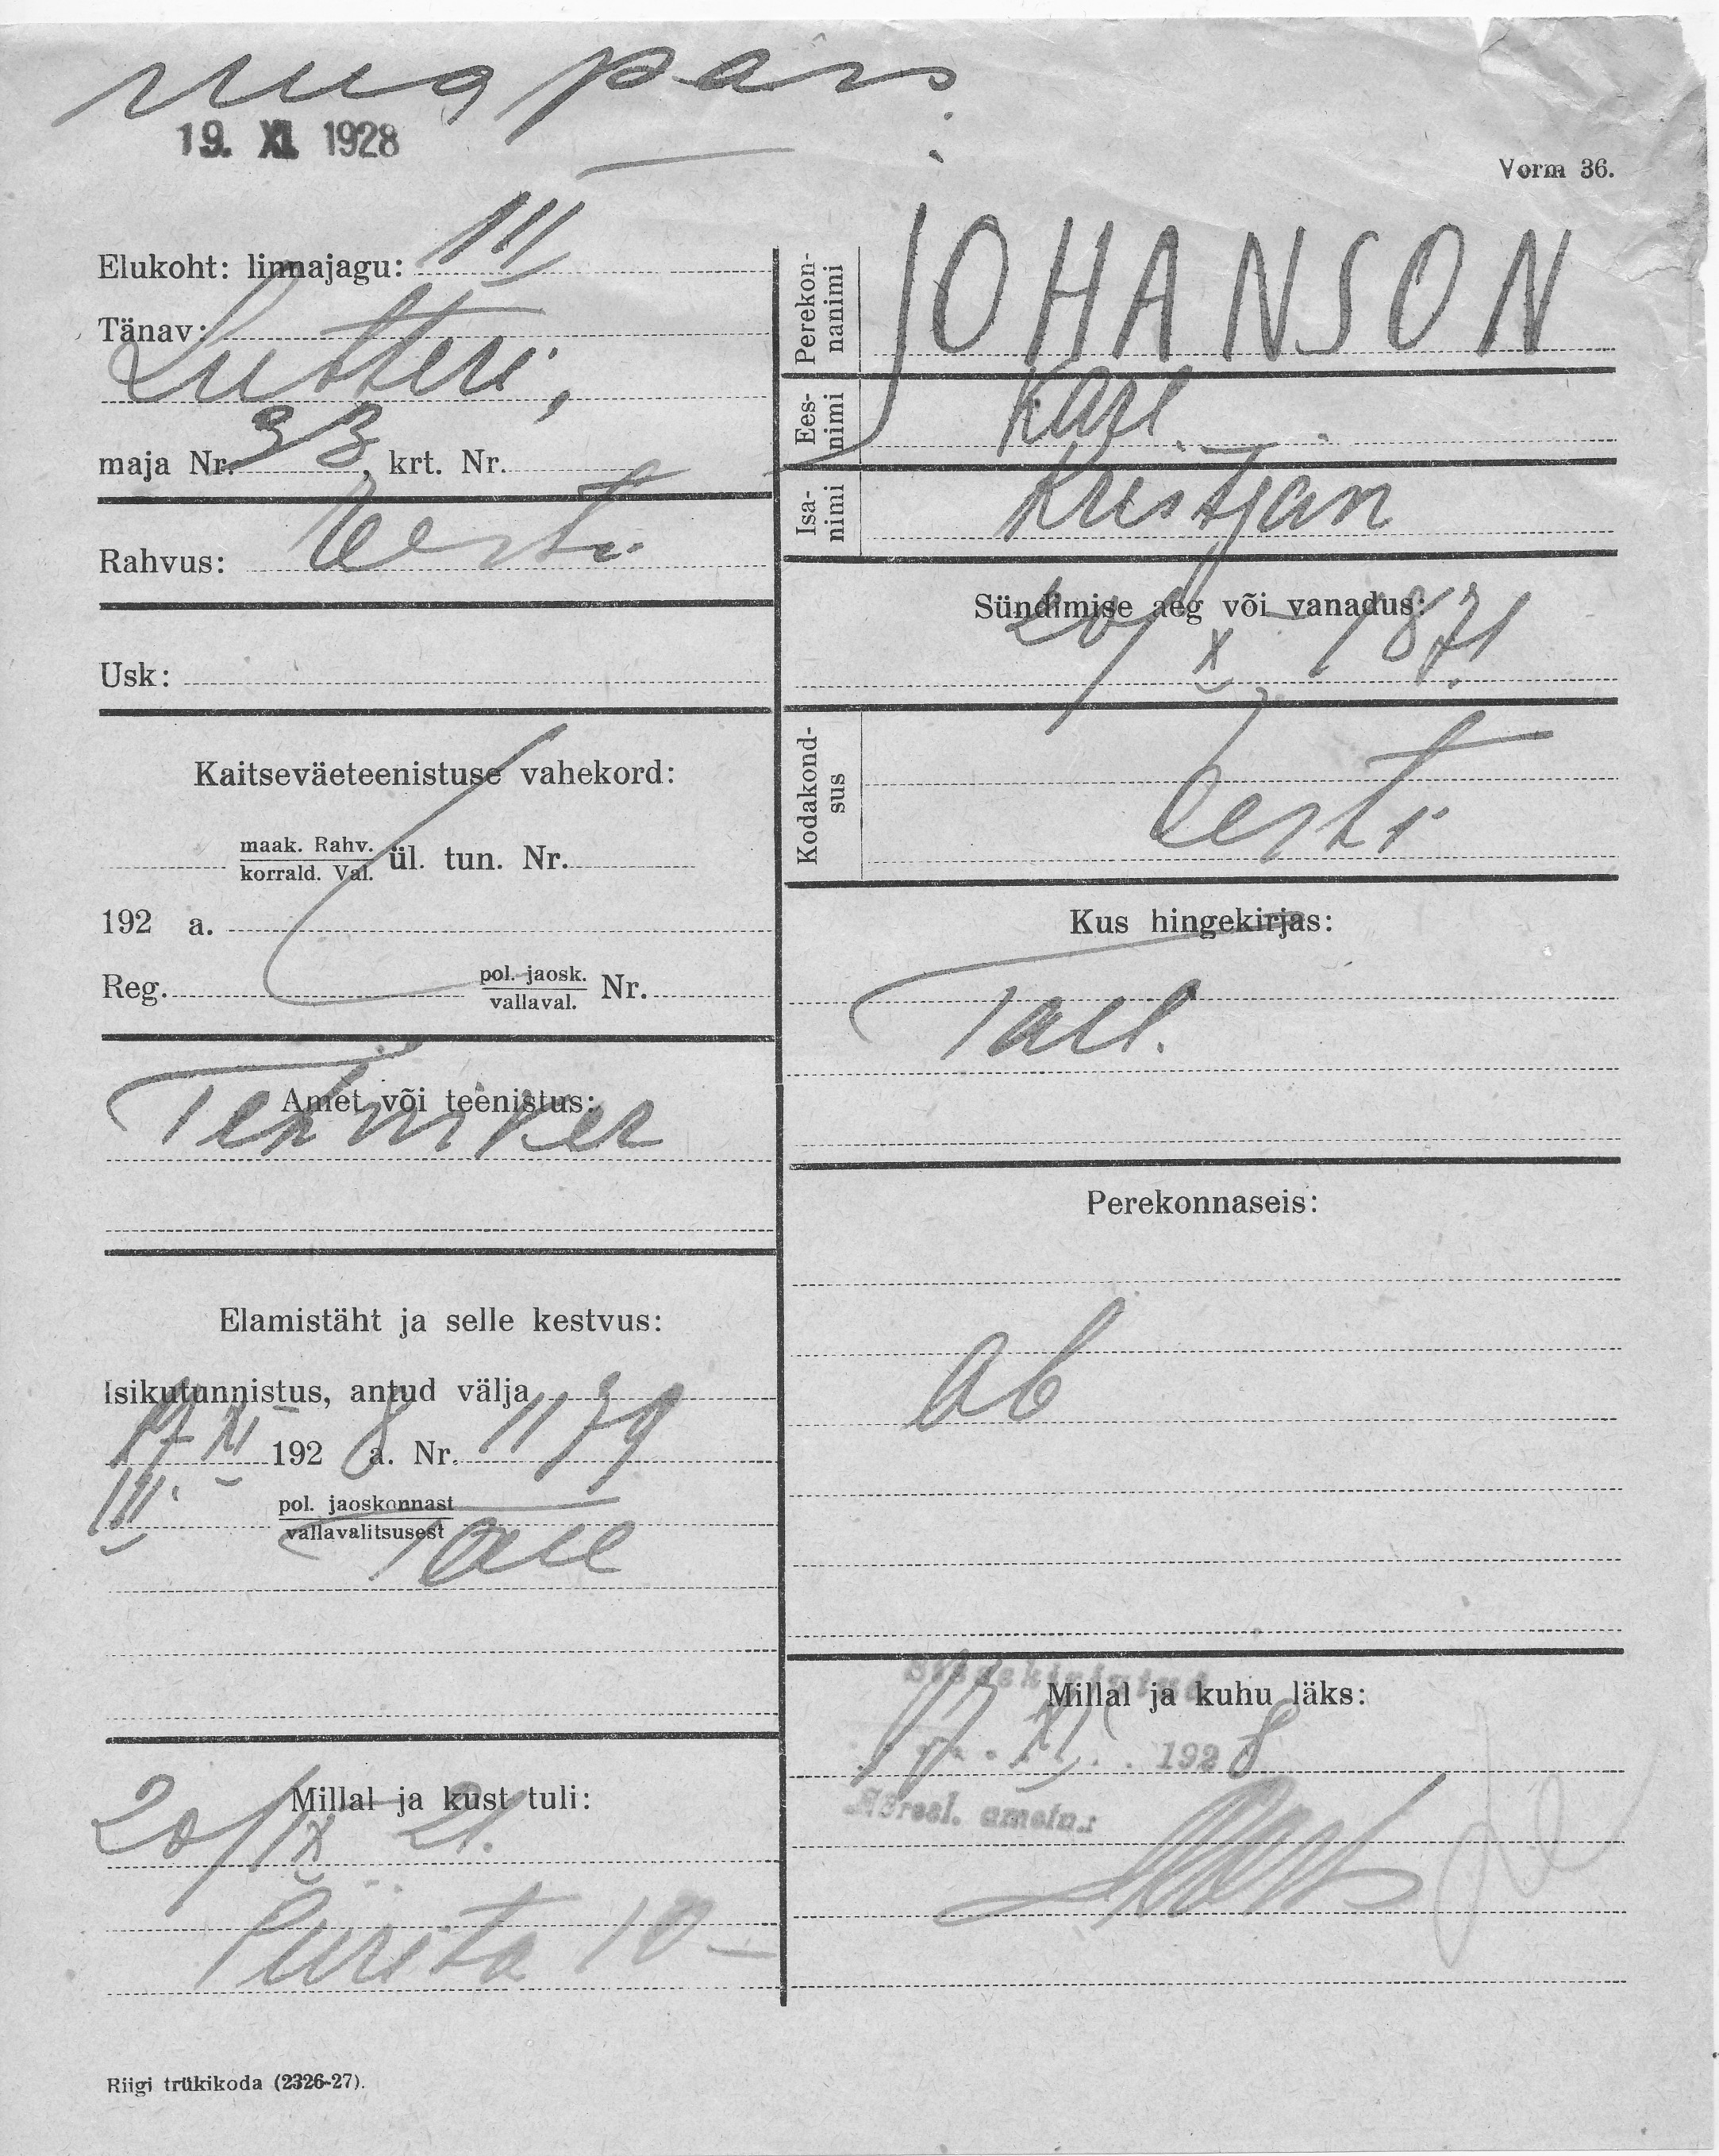 19. XI 1928
Vorm 36.
Elukoht: linnajagu: III
Tänav:
Lutteri,
maja Nr. 33, krt. Nr.
Rahvus: Eesti
Usk:
Kaitseväeteenistuse vahekord:
maak. Rahv.
korrald. Val. ül. tun. Nr.
192 a.
Reg. pol. jaosk.
vallaval. Nr.
Amet või teenistus:
Tehniker
Elamistäht ja selle kestvus:
Isikutunnistus, antud välja
17 XI 1928 a. Nr. 1179
III. pol. jaoskonnast
vallavalitsusest
Tall
Millal ja kust tuli:
20/IX 21.
Piirita 10
Perekonnanimi JOHANSON
Eesnimi Karl.
Isanimi Kristjan
Sündimise aeg või vanadus:
20/X 1871
Kodakondsus Eesti
Kus hingekirjas:
Tall.
Perekonnaseis:
ab
Sissekirjutud
Millal ja kuhu läks:
17 XI 1928
Adresl. ametn.:
Riigi trükikoda (2326-27).